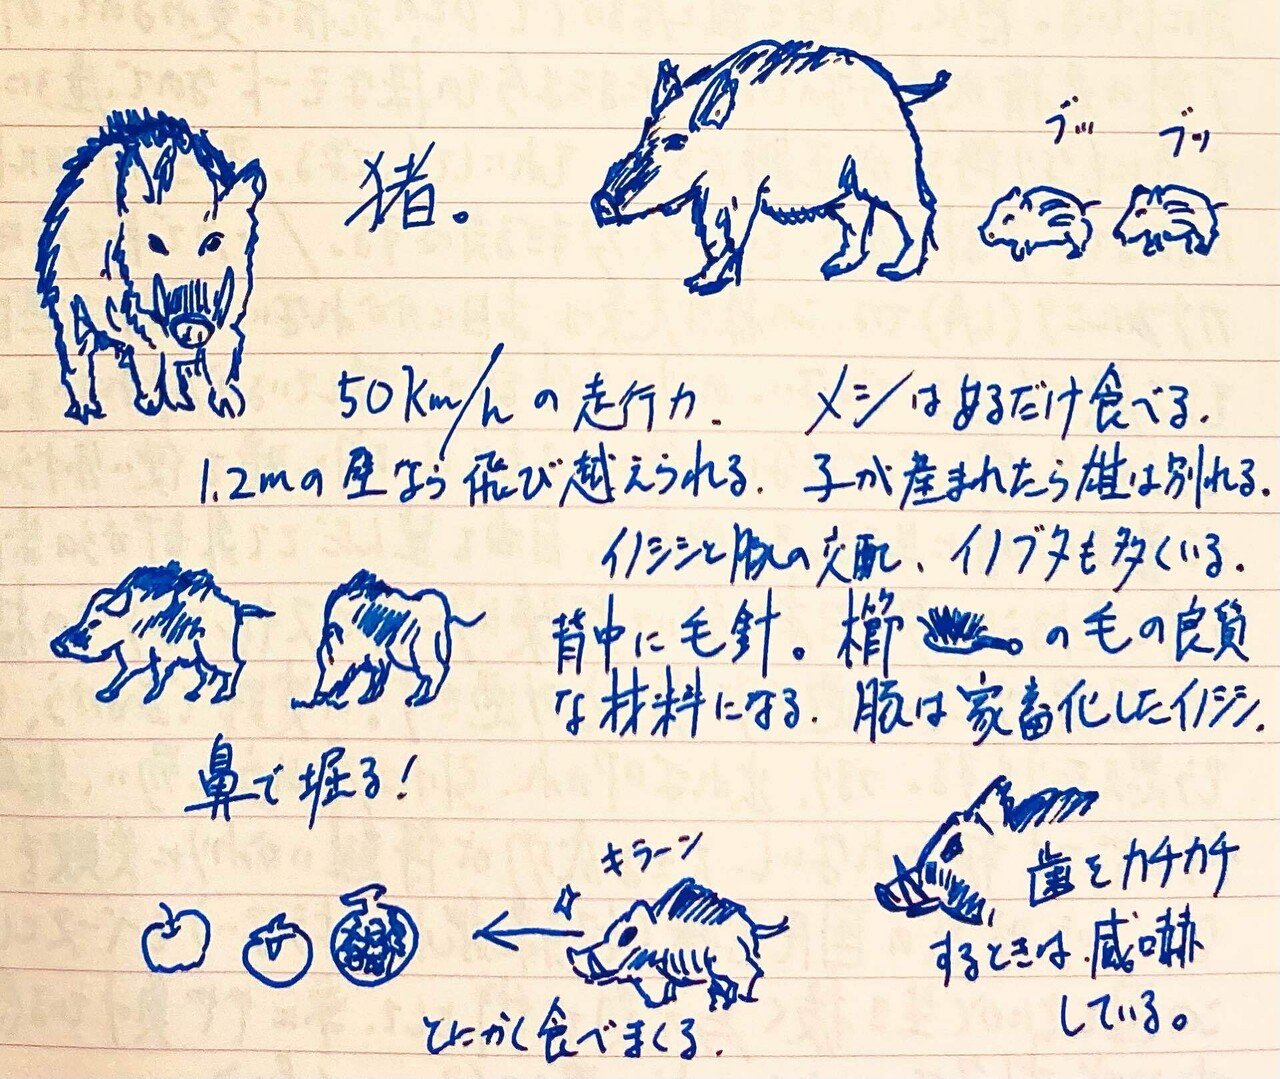 猪。
ブッ ブッ
50km/hの走行力. メシはあるだけ食べる.
1.2mの壁なら飛び越えられる. 子が産まれたら雄は別れる.
イノシシと豚の交配、イノブタも多くいる.
背中に毛針。櫛の毛の良質
な材料になる. 豚は家畜化したイノシシ.
鼻で堀る!
キラーン
歯をカチカチ
するときは.威嚇
している。
とにかく食べまくる.